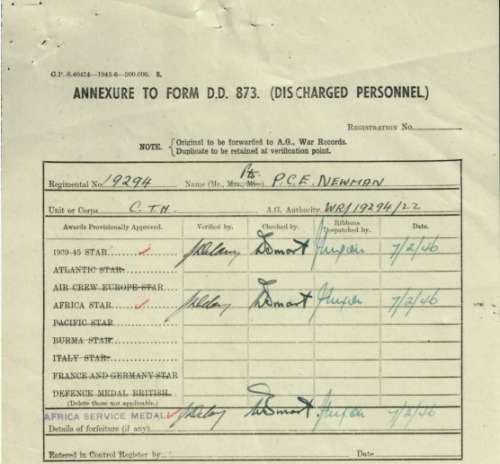 G.P.-S.40424—1945-6—200,000. S.
ANNEXURE TO FORM D.D. 873. (DISCHARGED PERSONNEL)
REGISTRATION No.
NOTE. {Original to be forwarded to A.G., War Records.
Duplicate to be retained at verification point.
Regimental No. 19294 Name (Mr., Mrs., Miss) Pte P.C.E. NEWMAN
Unit or Corps C.T.H. A.G. Authority WR/19294/22
Awards Provisionally Approved. Verified by. Checked by. Ribbons Despatched by. Date.
1939-45 STAR 7/2/46
ATLANTIC STAR
AIR CREW EUROPE STAR
AFRICA STAR 7/2/46
PACIFIC STAR
BURMA STAR
ITALY STAR
FRANCE AND GERMANY STAR
DEFENCE MEDAL BRITISH.
(Delete those not applicable.)
AFRICA SERVICE MEDAL 7/2/46
Details of forfeiture (if any)
Entered in Control Register by Date